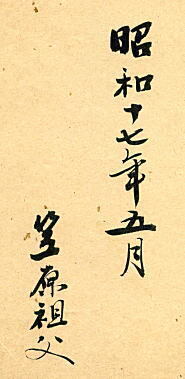 昭和十七年五月
笠原祖父